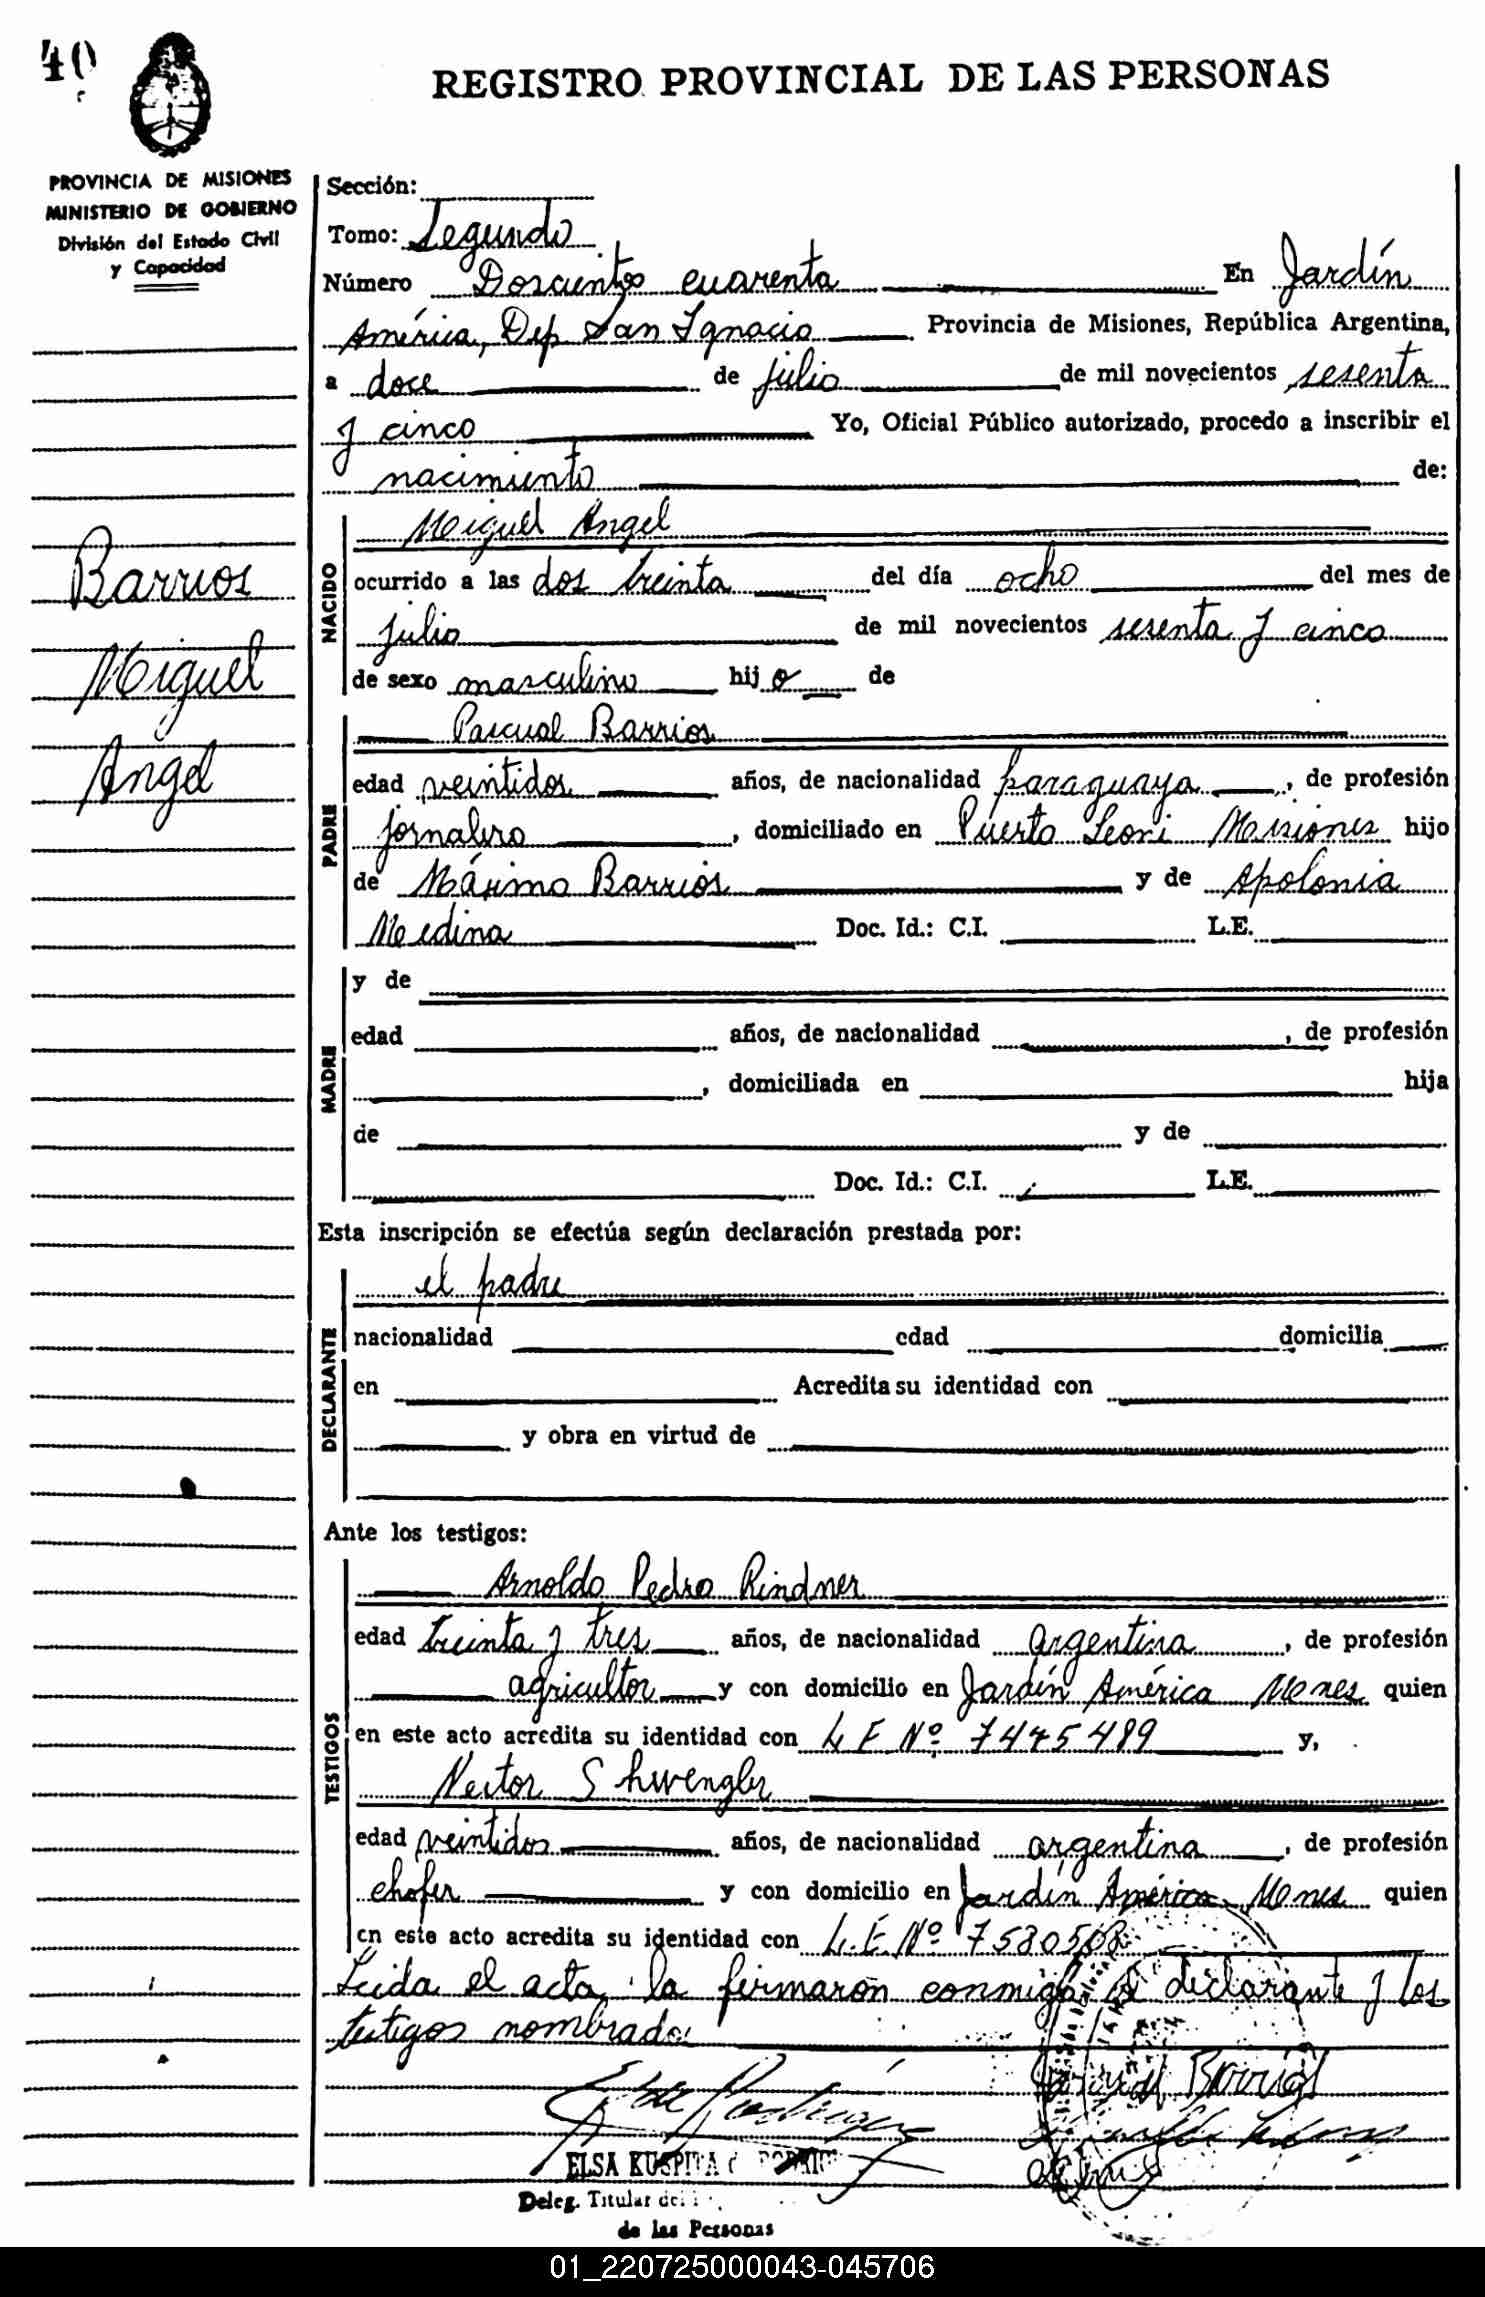 40
REGISTRO PROVINCIAL DE LAS PERSONAS
PROVINCIA DE MISIONES
MINISTERIO DE GOBIERNO
División del Estado Civil
y Capacidad
Barrios
Miguel
Angel
Sección:
Tomo: Segundo
Número Doscientos cuarenta En Jardín
América, Dep San Ignacio Provincia de Misiones, República Argentina,
a doce de julio de mil novecientos sesenta
y cinco Yo, Oficial Público autorizado, procedo a inscribir el
nacimiento de:
NACIDO
Miguel Angel
ocurrido a las dos treinta del día ocho del mes de
julio de mil novecientos sesenta y cinco
de sexo masculino hijo de
PADRE
Pascual Barrios
edad veintidos años, de nacionalidad paraguaya, de profesión
jornalero, domiciliado en Puerto Leoni Misiones hijo
de Máximo Barrios y de Apolonia
Medina Doc. Id.: C.I. L.E.
MADRE
y de
edad años, de nacionalidad , de profesión
, domiciliada en hija
de y de
Doc. Id.: C.I. L.E.
Esta inscripción se efectúa según declaración prestada por:
DECLARANTE
el padre
nacionalidad edad domicilia
en Acredita su identidad con
y obra en virtud de
Ante los testigos:
TESTIGOS
Arnoldo Pedro Rindner
edad treinta y tres años, de nacionalidad argentina, de profesión
agricultor y con domicilio en Jardín América Mones quien
en este acto acredita su identidad con L E Nº 7445489 y,
Nestor Shwengler
edad veintidos años, de nacionalidad argentina, de profesión
chofer y con domicilio en Jardín América Mones quien
en este acto acredita su identidad con L.E. Nº 7580508
Leida el acta, la firmaron conmigo el declarante y los
testigos nombrados
Barrios
ELSA KUSPITA
Deleg. Titular del
de las Personas
01_220725000043-045706